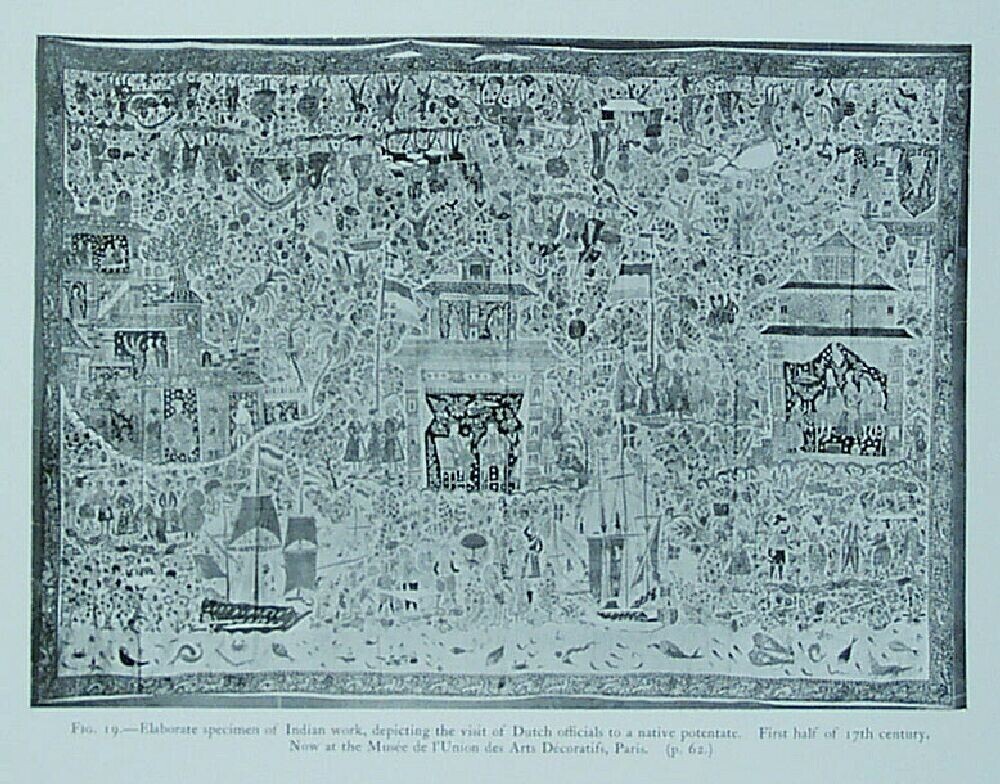 FIG. 19.—Elaborate specimen of Indian work, depicting the visit of Dutch officials to a native potentate. First half of 17th century.
Now at the Musée de l'Union des Arts Décoratifs, Paris. (p. 62.)